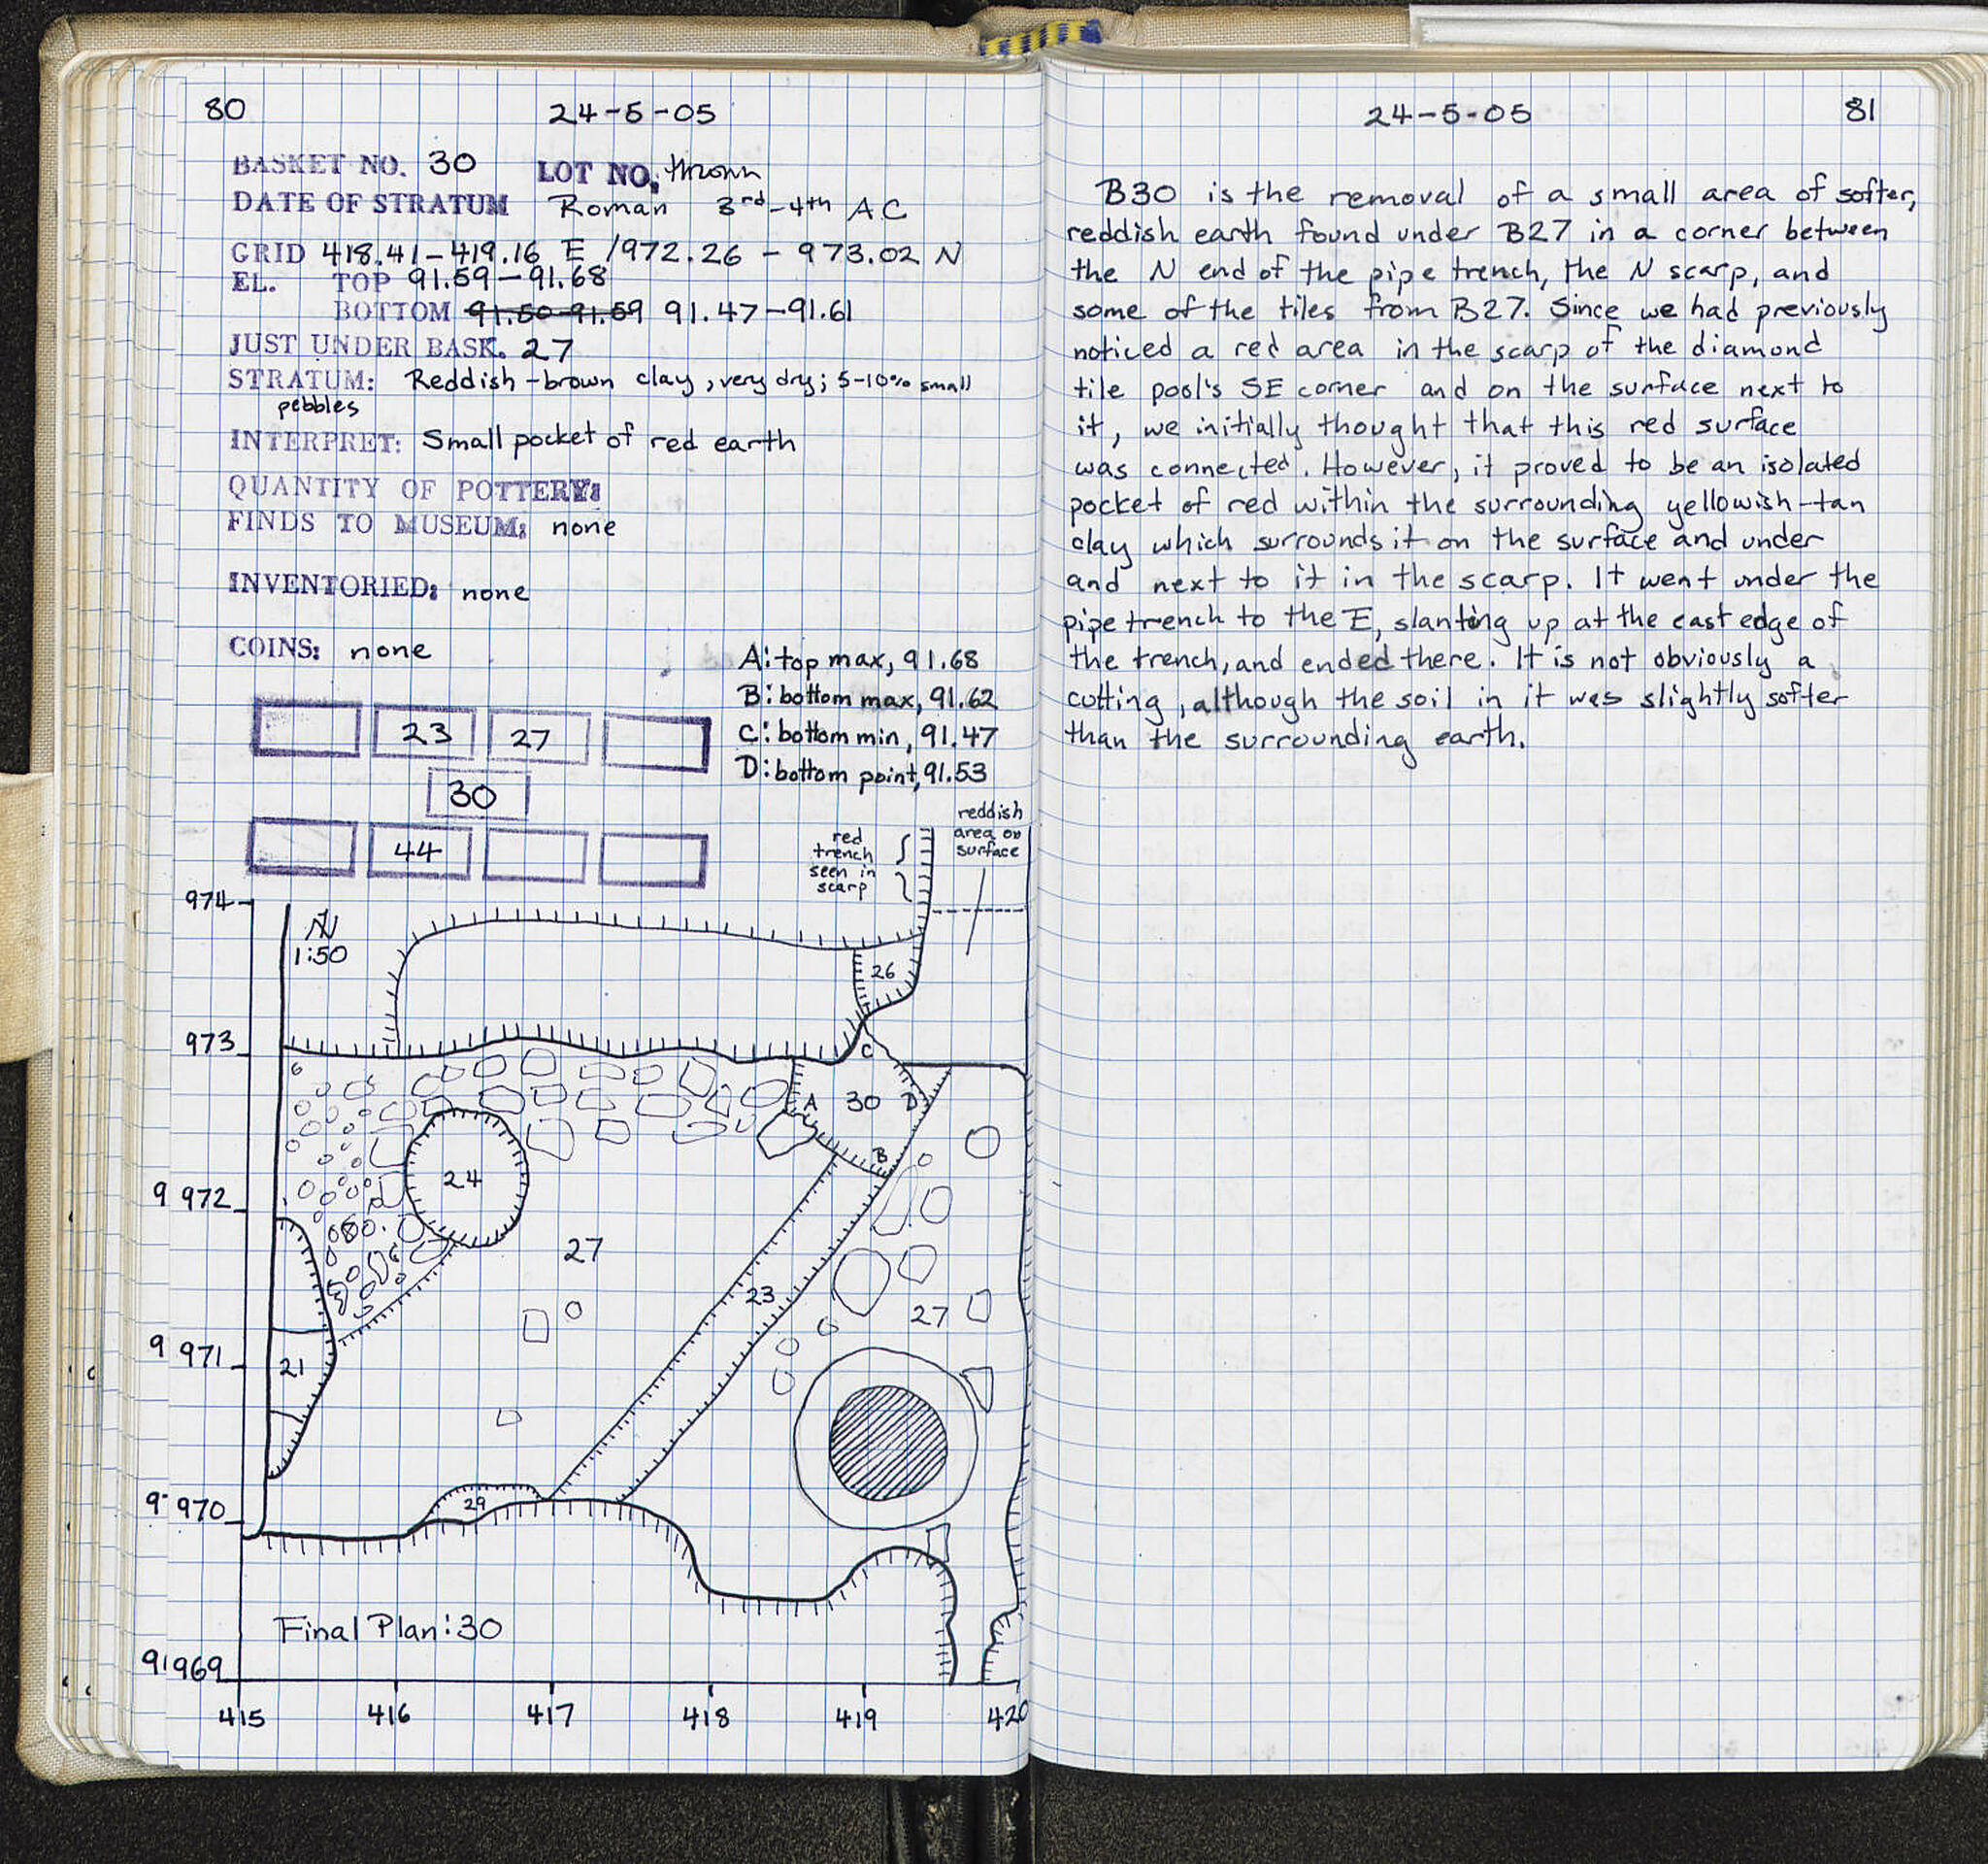 80
24-5-05
BASKET NO. 30 LOT NO. thrown
DATE OF STRATUM Roman 3rd-4th AC
GRID 418.41-419.16 E /972.26 - 973.02 N
EL. TOP 91.59-91.68
BOTTOM 91.50-91.59 91.47-91.61
JUST UNDER BASK. 27
STRATUM: Reddish-brown clay, very dry; 5-10% small
pebbles
INTERPRET: Small pocket of red earth
QUANTITY OF POTTERY:
FINDS TO MUSEUM: none
INVENTORIED: none
COINS: none
A: top max, 91.68
B: bottom max, 91.62
C: bottom min, 91.47
D: bottom point, 91.53
23 27
30
44
red
trench
seen in
scarp
reddish
area on
surface
974
N
1:50
26
973
C
A 30 D
B
24
9 972
27
23
27
9 971
21
9 970
29
Final Plan: 30
91969
415 416 417 418 419 420
24-5-05
81
B30 is the removal of a small area of softer,
reddish earth found under B27 in a corner between
the N end of the pipe trench, the N scarp, and
some of the tiles from B27. Since we had previously
noticed a red area in the scarp of the diamond
tile pool's SE corner and on the surface next to
it, we initially thought that this red surface
was connected. However, it proved to be an isolated
pocket of red within the surrounding yellowish-tan
clay which surrounds it on the surface and under
and next to it in the scarp. It went under the
pipe trench to the E, slanting up at the east edge of
the trench, and ended there. It is not obviously a
cutting, although the soil in it was slightly softer
than the surrounding earth.